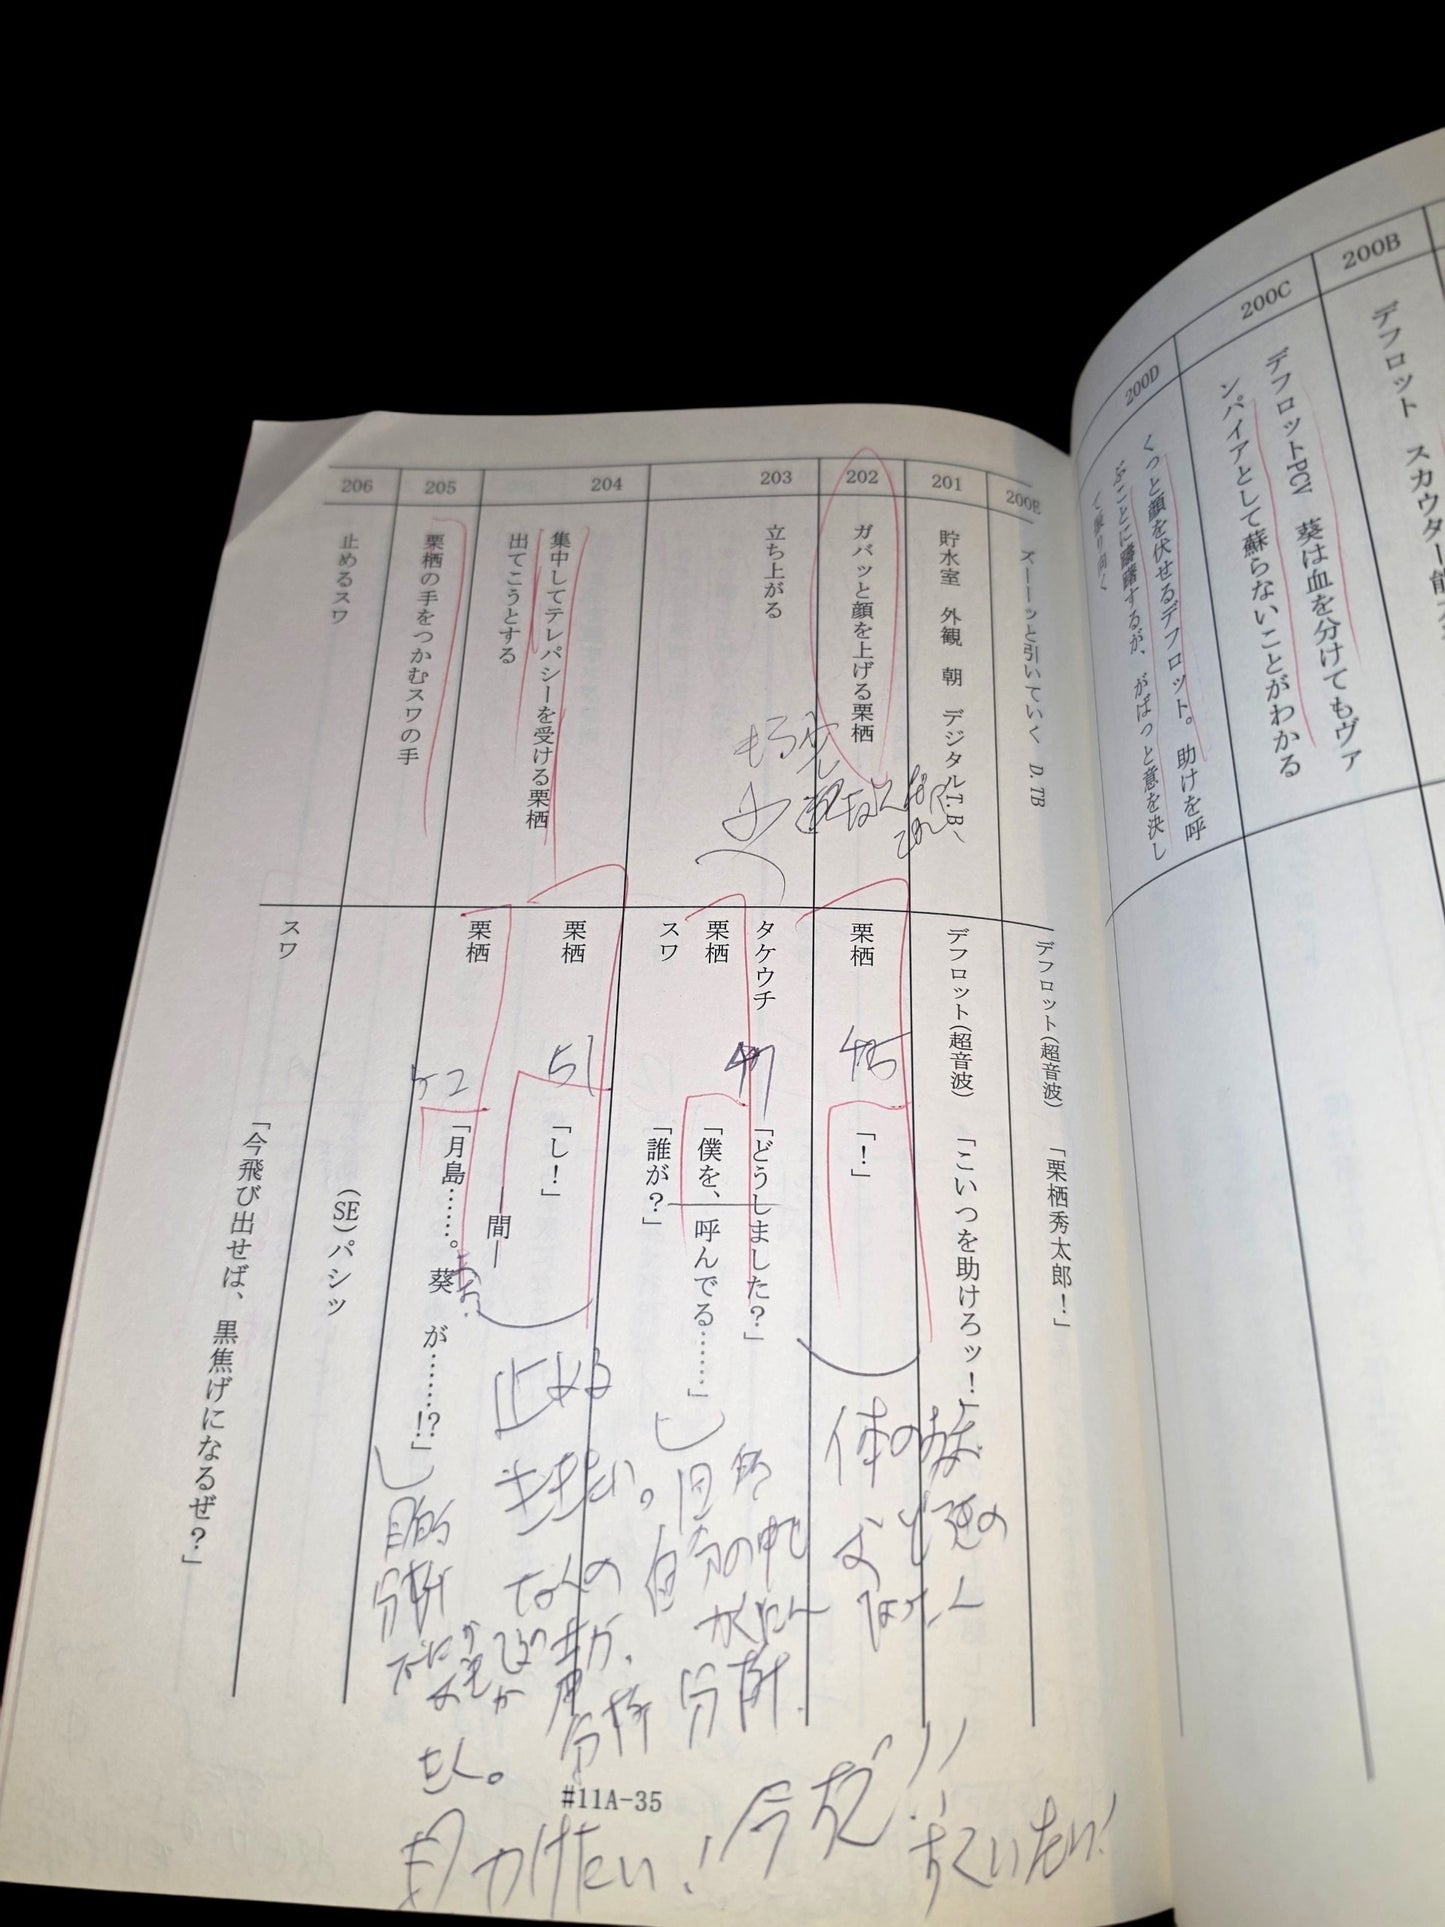 200B
デフロット　スカウター能
200C
デフロットPCV　葵は血を分けてもヴァ
ンパイアとして蘇らないことがわかる
200D
くっと顔を伏せるデフロット。助けを呼
ぶことに躊躇するが、がばっと意を決し
く振り向く
200E
ズーーッと引いていく　D. TB
デフロット(超音波)　「栗栖秀太郎！」
201
貯水室　外観　朝　デジタルT.B、
デフロット(超音波)　「こいつを助けろッ！」
202
ガバッと顔を上げる栗栖
栗栖　「！」
45
203
立ち上がる
タケウチ　「どうしました？」
栗栖　「僕を、呼んでる……」
スワ　「誰が？」
47
204
集中してテレパシーを受ける栗栖
出てこうとする
栗栖　「し！」
51
―間―
栗栖　「月島……。葵　が……!?」
52
あお
205
栗栖の手をつかむスワの手
206
止めるスワ
(SE)パシッ
スワ　「今飛び出せば、黒焦げになるぜ？」
体の
止める
自分の中で
かくにん
分析
目的
分析
なんの
たく。
#11A-35
今だ!!
すくいたい!
かけたい!